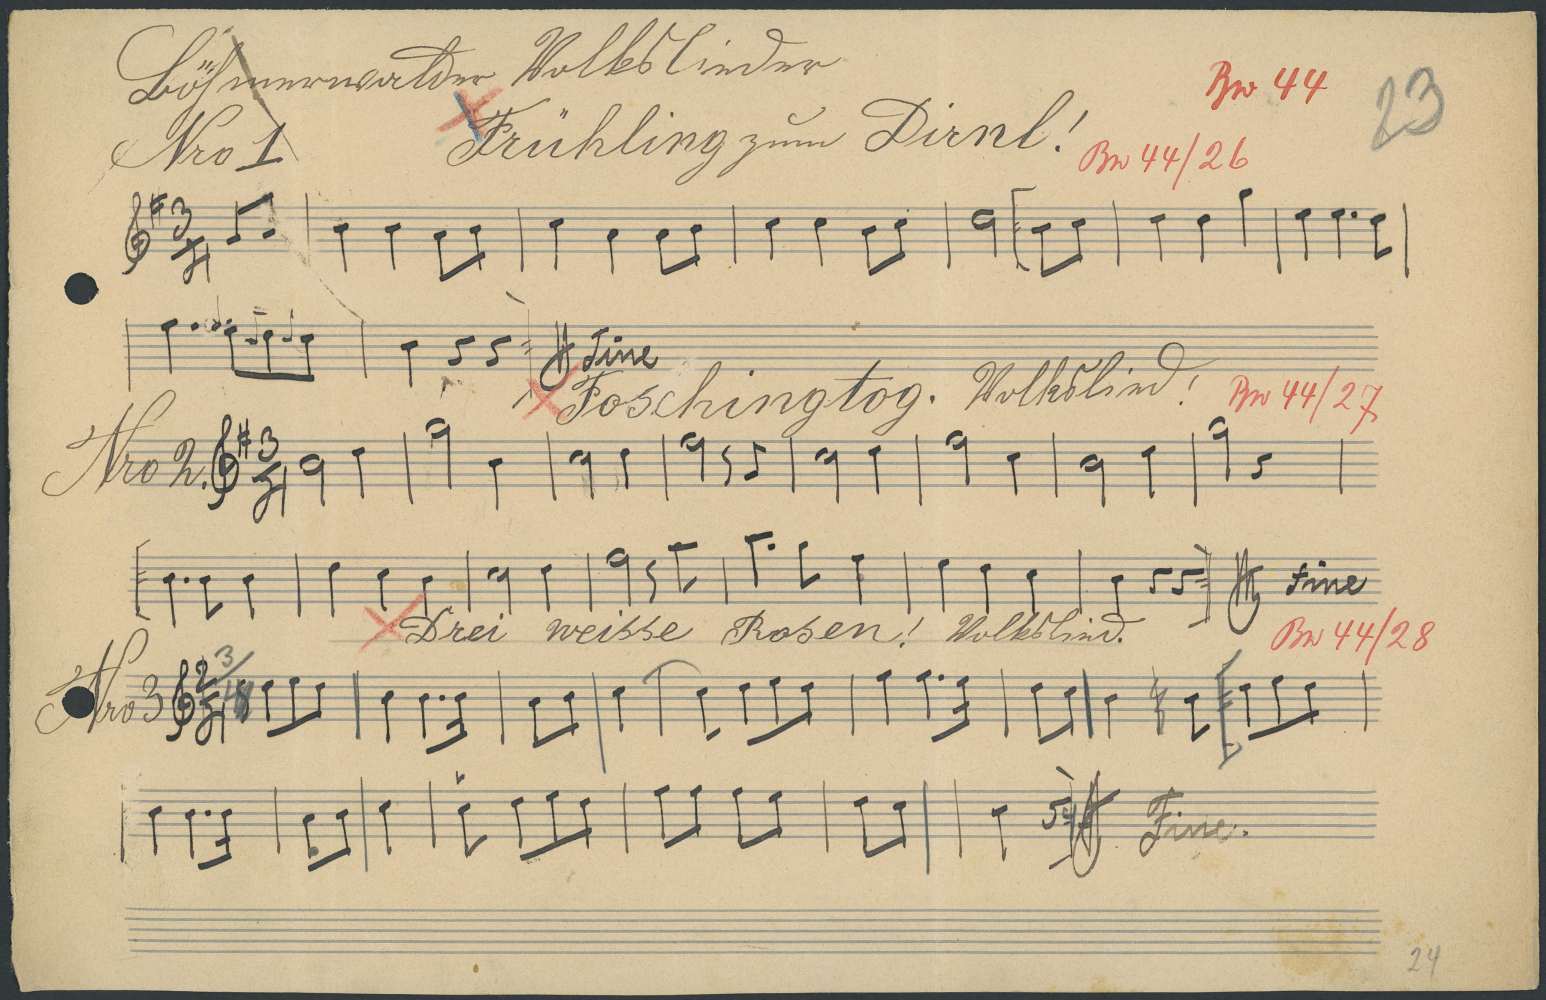 Böhmerwalder Volkslieder
Bw 44 23
Nro 1 Frühling zum Dirnl!
Bw 44/26
3
4
Fine
Foschingtog. Volkslied! Bw 44/27
Nro 2.
3
4
Fine
Drei weisse Rosen! Volkslied. Bw 44/28
Nro 3
2
4
3/
Fine.
24